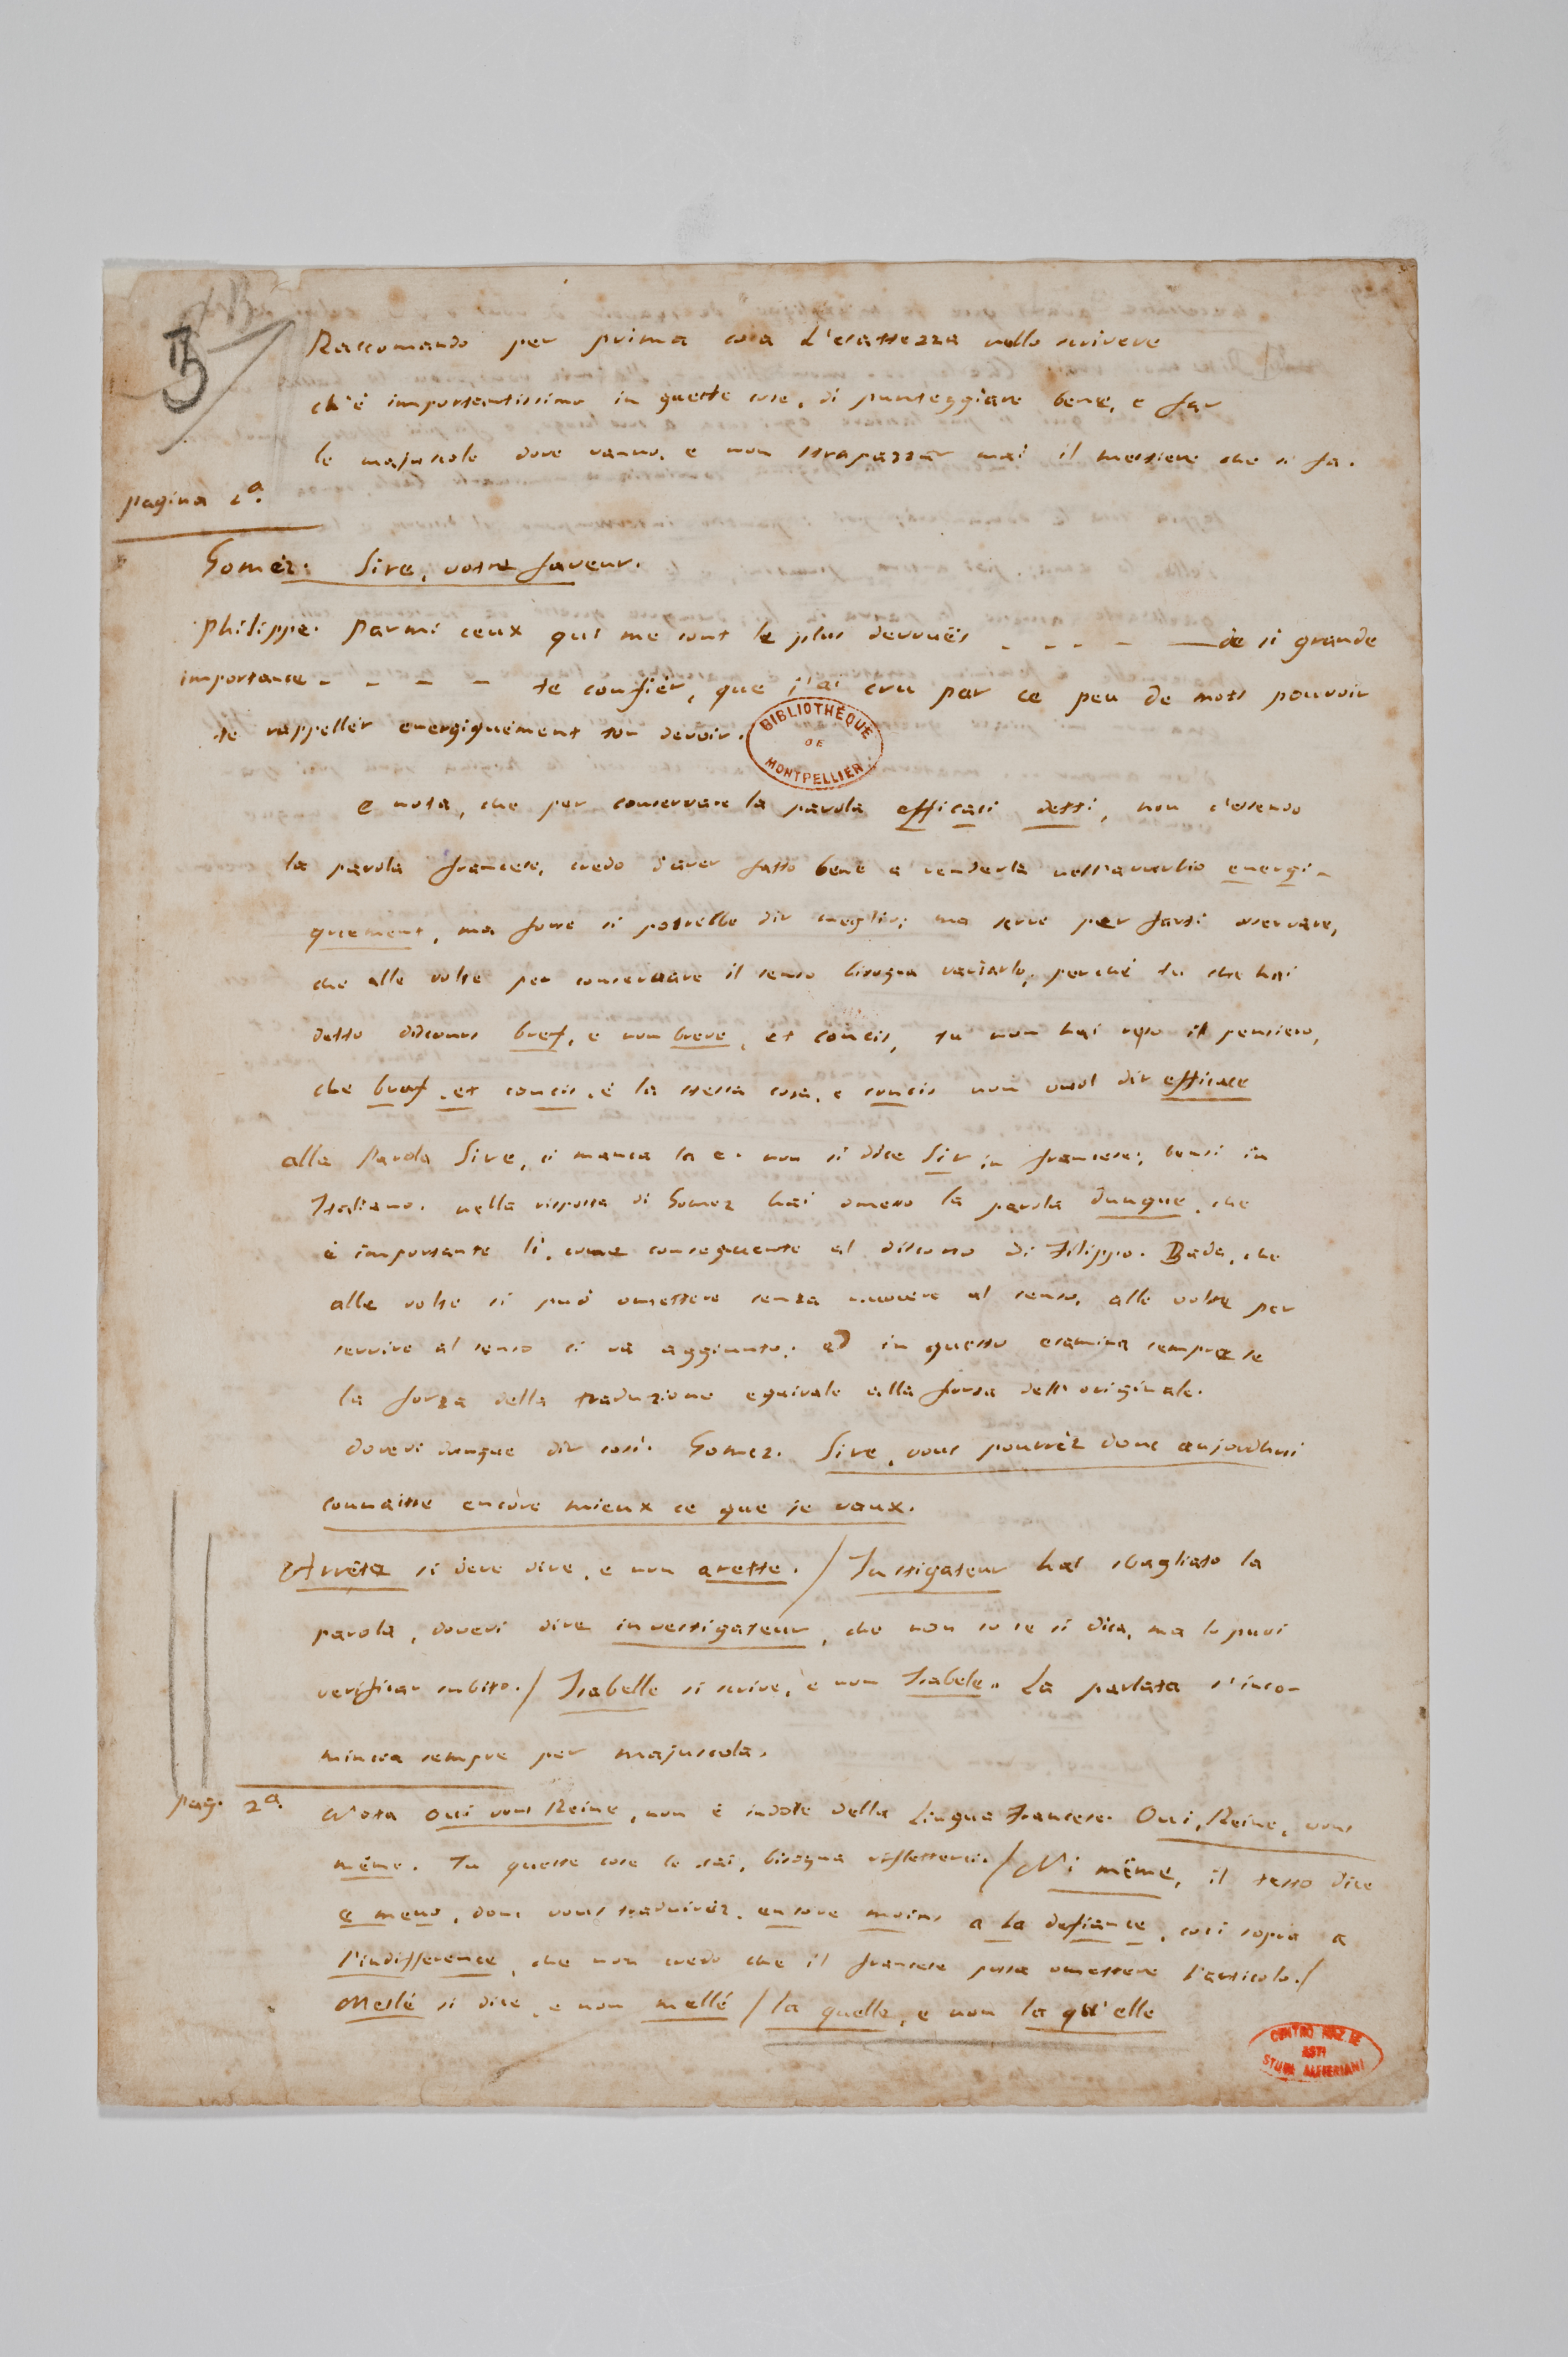 B
Raccomando per prima cosa l'esattezza nello scrivere
ch'è importantissimo in queste cose, di punteggiare bene, e far
le majuscole dove vanno, e non strapazzar mai il mestiere che si fa.
pagina 1ª.
Gomèz. Sire, votre faveur.
Philippe. Parmi ceux qui me sont le plus devouës . - - - — de si grande
importance - - - - te confier, que j'ai cru par ce peu de mots pouvoir
te rappellér energiquément ton devoir.
BIBLIOTHÈQUE DE MONTPELLIER
e nota, che per conservare la parola efficaci detti, non c'essendo
la parola francese, credo d'aver fatto bene a renderla nell'avverbio energi-
quement, ma forse si potrebbe dir meglio; ma serve per farti osservare,
che alle volte per conservare il senso bisogna variarlo, perché tu che hai
detto discours bref, e non breve, et concis, tu non hai reso il pensiero,
che bref, et concis, è la stessa cosa, e concis non vuol dir efficace
alla Parola Sire, ci manca la e. non si dice Sir in francese; bensi in
Italiano. nella risposta di Gomez hai omesso la parola dunque, che
è importante lì, come conseguente al discorso di Filippo. Bada, che
alle volte si può omettere senza nuocere al senso, alle volte per
servire al senso ci va aggiunto; ed in questo esamina sempre se
la forza della traduzione equivale alla forza dell'originale.
dovevi dunque dir così. Gomez. Sire, vous pourréz donc aujourdhui
connaitre encòre mieux ce que je vaux.
Arrêta si deve dire, e non arette. / Instigateur hai sbagliato la
parola, dovevi dire investigateur, che non so se si dica, ma lo puoi
verificar subito. / Isabelle si scrive, e non Isabele. La parlata s'inco-
mincia sempre per majuscola.
pag. 2ª. Nota Oui vous Reine, non è indole della Lingua Francese. Oui, Reine, vous
même. Tu queste cose le sai, bisogna rifletterci. / Ni même, il testo dice
e meno, donc vous traduiréz. encore moins a la defiance, così sopra a
l'indifference, che non credo che il francese possa omettere l'articolo. /
Meslé si dice, e non mellé / la quelle, e non la qu'elle
CENTRO NAZ. LE
ASTI
STUDI ALFIERIANI